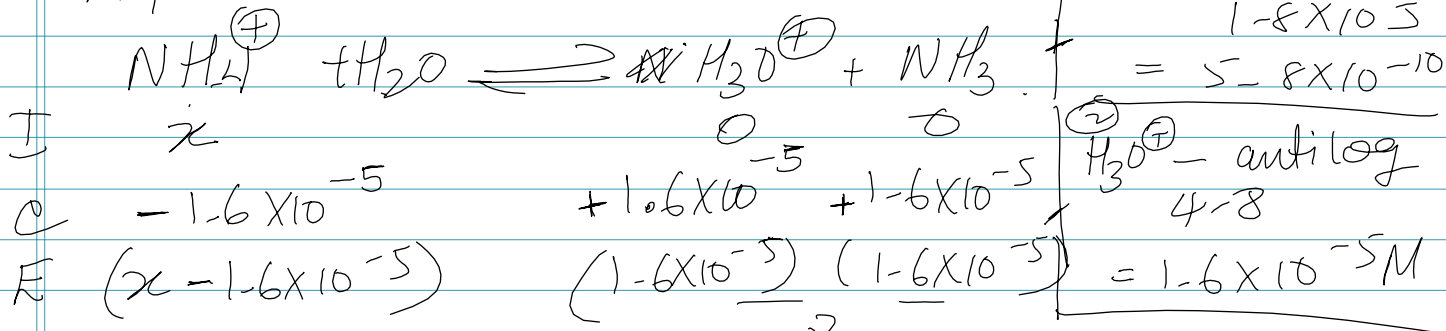 NH₄⊕ + H₂O ⇌ H₃O⊕ + NH₃
I x 0 0
C - 1.6 X10⁻⁵ + 1.6X10⁻⁵ + 1.6X10⁻⁵
E (x - 1.6X10⁻⁵) (1.6X10⁻⁵) (1.6X10⁻⁵)
1.8X10 5
= 5.8X10⁻¹⁰
② H₃O⊕ - antilog
4.8
= 1.6X10⁻⁵M